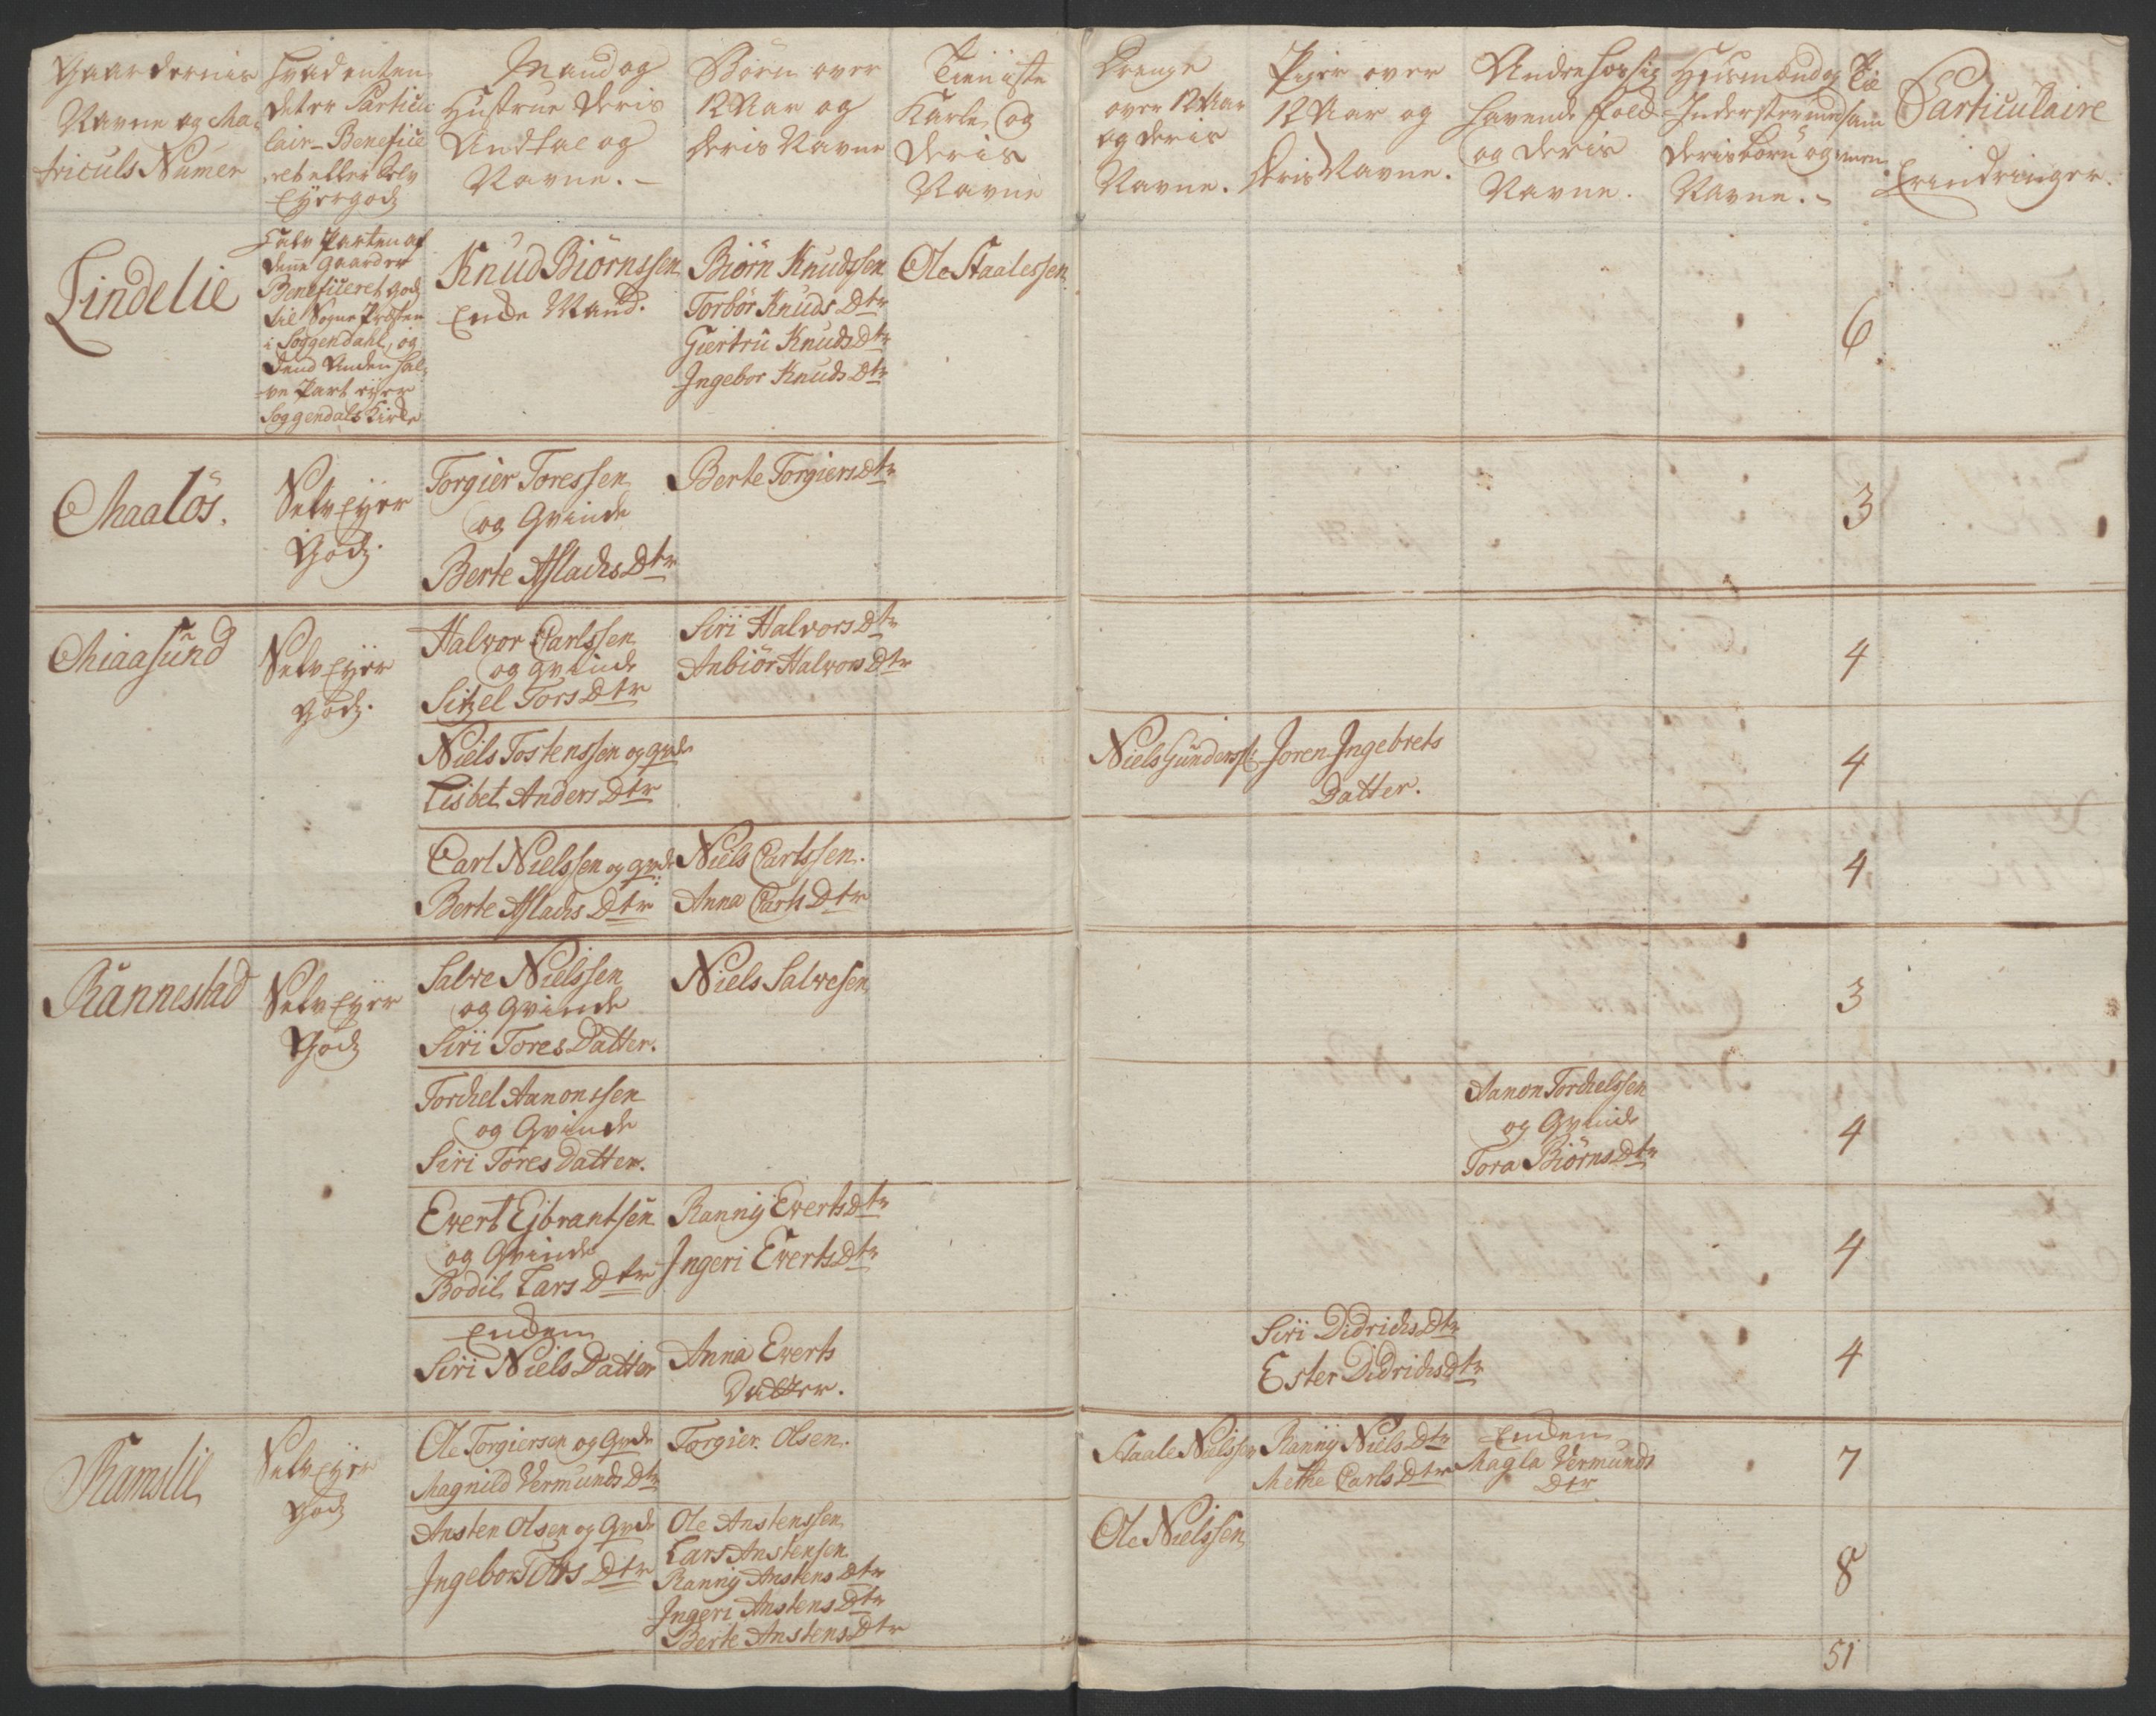 Gaardernis
Navne og Ma-
triculs Numer
Hvad enten
det er Particu
lair- Benefice
ret eller Selv
Eyergodz
Mand og
Hustrue deris
Andtal og
Navne. -
Børn over
12 Aar og
deris Navne
Tieniste
Karle og
deris
Navne
Drenge
over 12 Aar
og deris
Navne.
Piger over
12 Aar og
deris Navne.
Andre hos sig
havende folck
og deris
Navne.
Huusmænd og
Inderster med
deris børn og
Navne. -
Til
sam
men
Particulaire
Erindringer.
Lindelie
Halv Parten af
denne gaard er
Beneficeret godz
til Sogne Præsten
i Soggendahl, og
dend Anden hal-
ve Part eyer
Soggendals Kirke
Knud Biörnssen
Enke Mand.
Biörn Knudssen
Torbör Knuds Dtr
Giertrü Knuds Dtr
Ingebor Knuds Dtr
Ole Staalessen
6
Maalös.
Selv Eyer
Godz.
Torgier Toressen
og Qvinde
Berte Aslachs Dtr
Berte Torgiers Dtr
3
Miaasund
Selv Eyer
Godz.
Halvor Carlssen
og qvinde
Sitzel Tors Dtr
Siri Halvors Dtr
Anbiör Halvors Dtr
4
Niels Tostenssen og qvde
Lisbet Anders Dtr
Niels Gunderss:
Joren Ingebrets
Datter.
4
Carl Nielssen og qvde
Berte Aslachs Dtr
Niels Carlssen.
Anna Carls Dtr
4
Rannestad
Selv Eyer
Godz
Salve Nielssen
og Qvinde
Siri Tores Datter.
Niels Salvesen
3
Torchel Aanonssen
og Qvinde
Siri Tores Datter.
Aanon Torchelssen
og Qvinde
Tora Biörns Dtr
4
Evert Ejbrantsen
og Qvinde
Bodil Lars Dtr
Ranny Everts Dtr
Ingeri Everts Dtr
4
Enken
Siri Niels Datter
Anna Everts
Datter.
Siri Didrichs Dtr
Ester Didrichs Dtr
4
Ramslie
Selv Eyer
Godz
Ole Torgiersen og Qvde
Magnild Vermunds Dtr
Torgier Olsen.
Staale Nielssen
Ranny Niels Dtr
Methe Carls Dtr
Enken
Magla Vermunds
Dtr
7
Ansten Olsen og Qvde
Ingebor Tors Dtr
Ole Anstenssen
Lars Anstensen
Ranny Anstens Dtr
Ingeri Anstens Dtr
Berte Anstens Dtr
Ole Nielssen
8
51